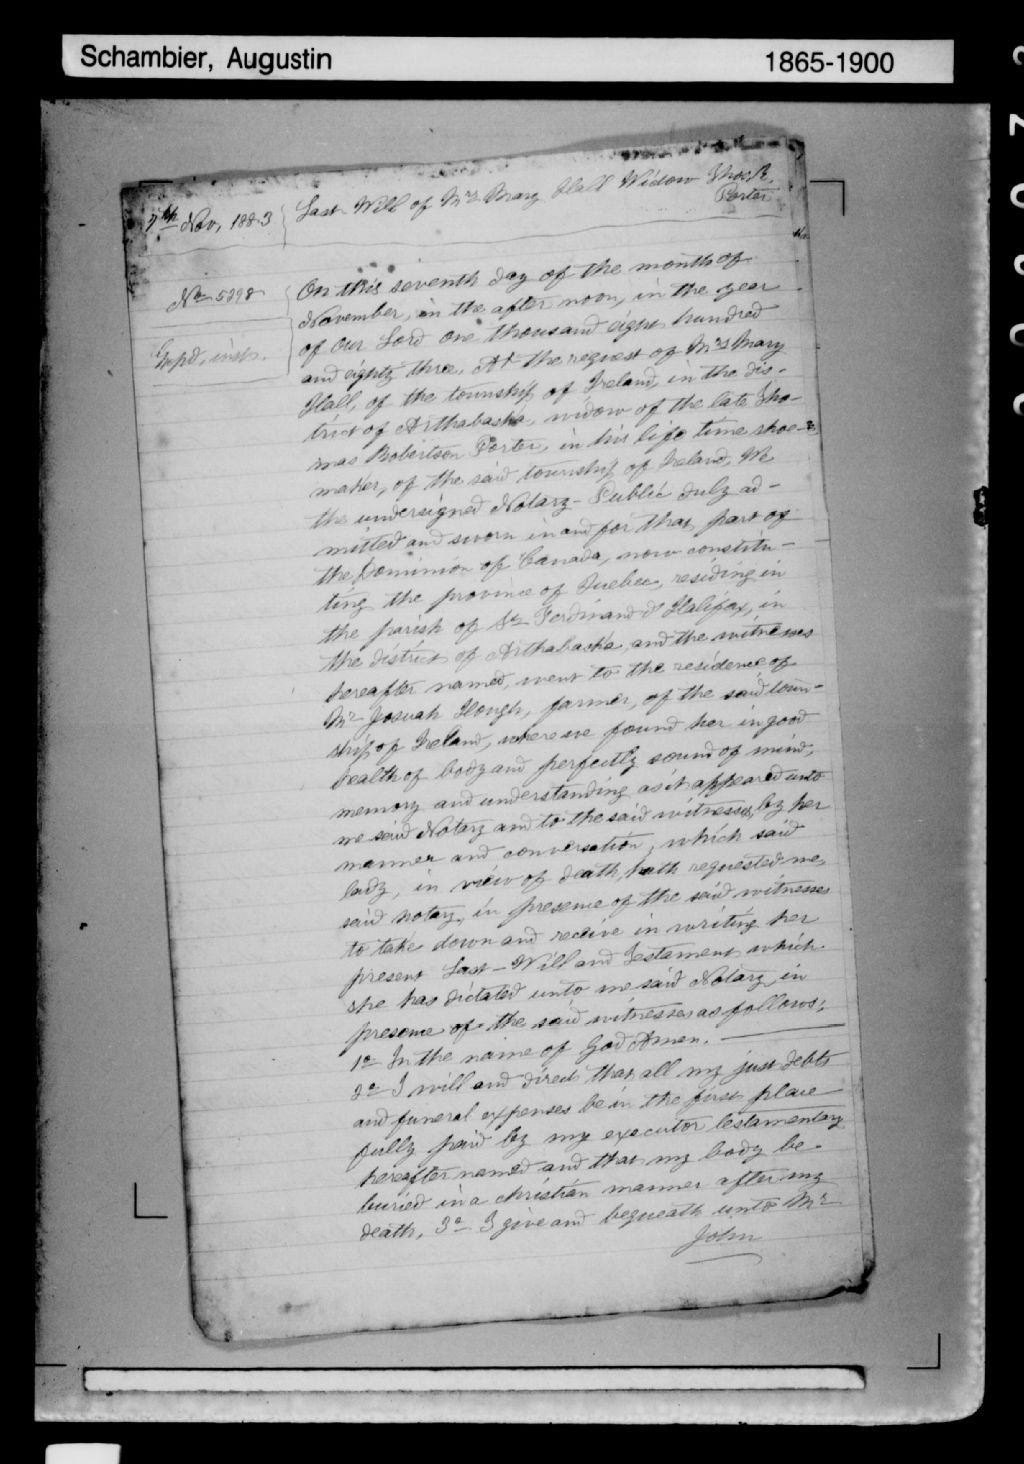 Schambier, Augustin 1865-1900
7th Nov, 1883
Last Will of Mrs Mary Hall Widow Thos. R.
Porter
No 5298
On this seventh day of the month of
November, in the after noon, in the year
of Our Lord one thousand eight hundred
and eighty three, At the request of Mrs Mary
Hall, of the township of Ireland, in the dis-
trict of Arthabaska, widow of the late Tho-
mas Robertson Porter, in his life time shoe-
maker, of the said township of Ireland, We
the undersigned Notary-Public duly ad-
mitted and sworn in and for that part of
the Dominion of Canada, now constitu-
ting the province of Quebec, residing in
the parish of St Ferdinand d'Halifax, in
the district of Arthabaska, and the witnesses
hereafter named, went to the residence of
Mr Josuah Hough, farmer, of the said town-
ship of Ireland, where we found her in good
health of body and perfectly sound of mind,
memory and understanding as it appeared unto
me said Notary and to the said witnesses, by her
manner and conversation, which said
lady, in view of death, hath requested me,
said notary, in presence of the said witnesses
to take down and receive in writing her
present Last-Will and Testament which
she has dictated unto me said Notary, in
presence of the said witnesses as follows;
1o In the name of God Amen.
2o I will and direct that all my just debts
and funeral expenses be in the first place
fully paid by my executor testamentary
hereafter named and that my body be
buried in a christian manner after my
death, 3o I give and bequeath unto Mr
John